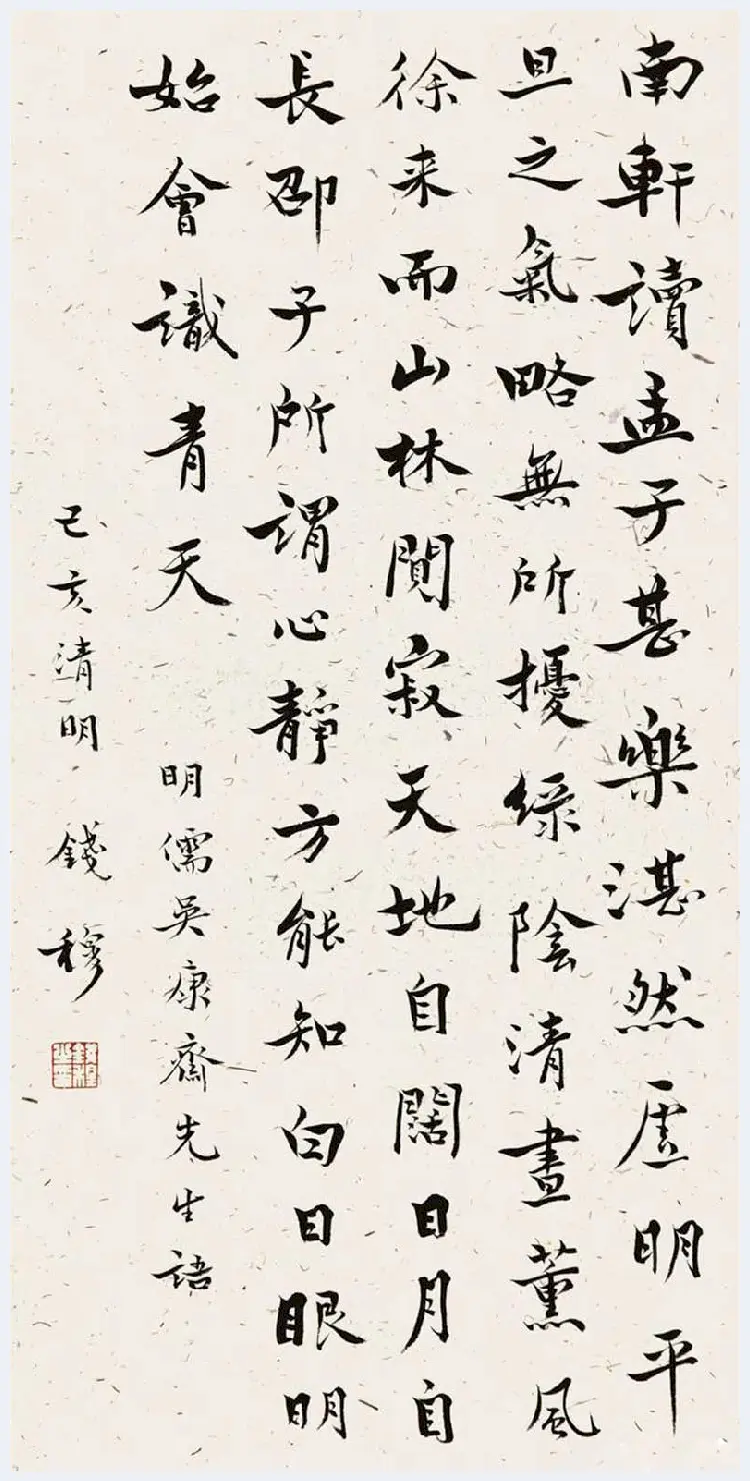 南軒讀孟子甚樂湛然虛明平
旦之氣略無所擾綠陰清晝薰風
徐来而山林閴寂天地自闊日月自
長邵子所謂心靜方能知白日眼明
始會識青天
明儒吳康齋先生語
己亥清明 錢穆